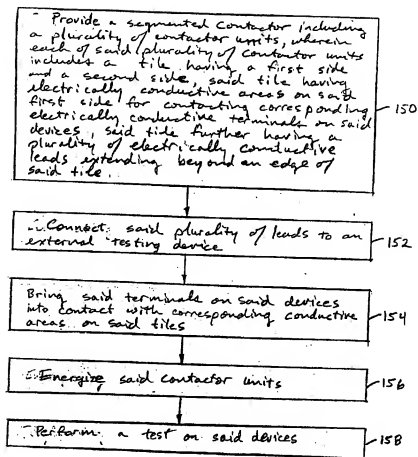 Provide a segmented contactor including
a plurality of contactor units, wherein
each of said plurality of contactor units
includes a tile having a first side
and a second side, said tile having
electrically conductive areas on said
first side for contacting corresponding
electrically conductive terminals on said
devices, said tide further having a
plurality of electrically conductive
leads extending beyond an edge of
said tile.
150
Connect said plurality of leads to an
external testing device
152
Bring said terminals on said devices
into contact with corresponding conductive
areas on said tiles
154
Energize said contactor units
156
Perform a test on said devices
158